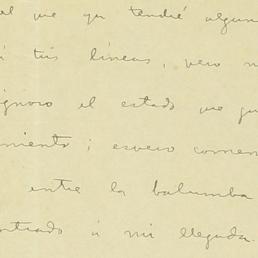 el que ya tendré algun
á tus líneas, pero n
ignoro el estado que gu
miento; espero comen
entre la balumba
ontrado á mi llegada.